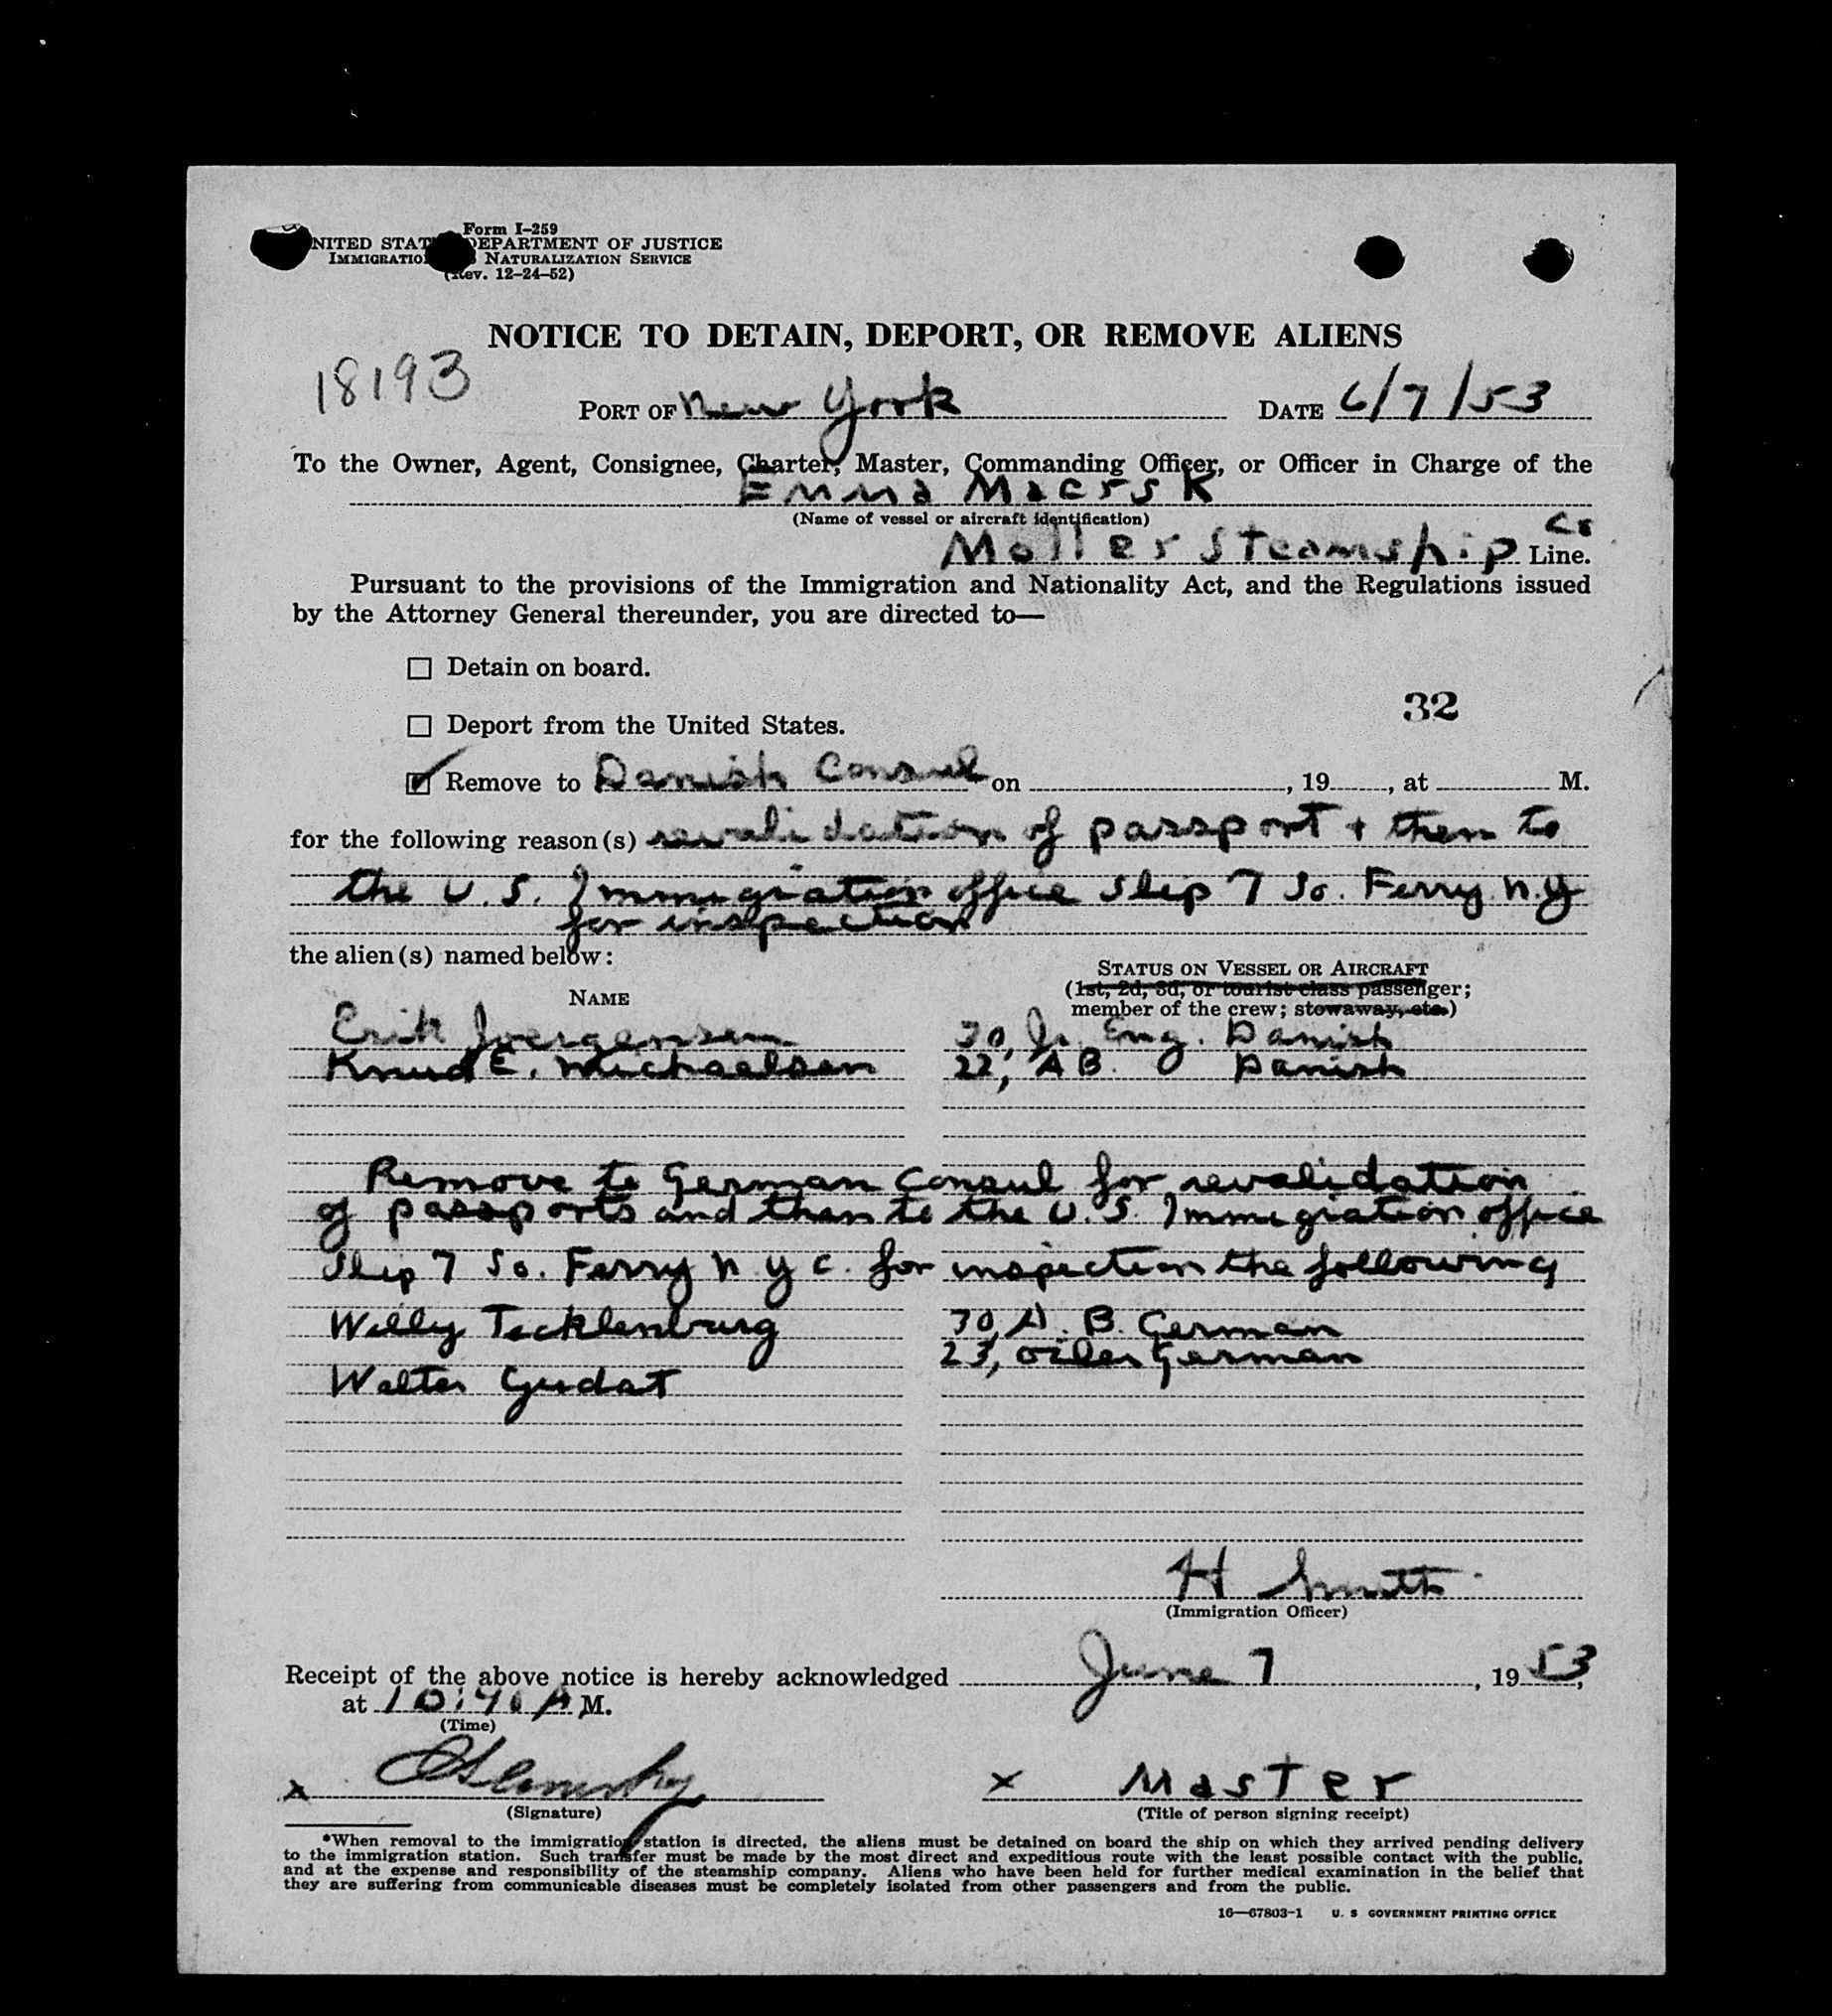 Form I-259
NITED STAT DEPARTMENT OF JUSTICE
IMMIGRATIO NATURALIZATION SERVICE
(Rev. 12-24-52)
NOTICE TO DETAIN, DEPORT, OR REMOVE ALIENS
18193
PORT OF New York DATE 6/7/53
To the Owner, Agent, Consignee, Charter, Master, Commanding Officer, or Officer in Charge of the
Emma Maersk
(Name of vessel or aircraft identification)
Moller Steamship Co Line.
Pursuant to the provisions of the Immigration and Nationality Act, and the Regulations issued
by the Attorney General thereunder, you are directed to—
☐ Detain on board.
32
☐ Deport from the United States.
☑ Remove to Danish Consul on , 19 , at M.
for the following reason(s) revalidation of passport + then to
the U.S. Immigration office Slip 7 So. Ferry N.Y
for inspection
the alien(s) named below:
STATUS ON VESSEL OR AIRCRAFT
NAME (1st, 2d, 3d, or tourist class passenger;
member of the crew; stowaway, etc.)
Erik Joergensen 30, Jr. Eng. Danish
Knud E. Michaelsen 22, AB. Danish
Remove to German Consul for revalidation
of passports and then to the U.S. Immigration office
Slip 7 So. Ferry N Y C. for inspection the following
Willy Tecklenburg 30, A. B. German
23, oiler German
Walter Gudat
H Smith
(Immigration Officer)
Receipt of the above notice is hereby acknowledged June 7, 1953,
at 10:40 A M.
(Time)
x x Master
(Signature) (Title of person signing receipt)
*When removal to the immigration station is directed, the aliens must be detained on board the ship on which they arrived pending delivery
to the immigration station. Such transfer must be made by the most direct and expeditious route with the least possible contact with the public,
and at the expense and responsibility of the steamship company. Aliens who have been held for further medical examination in the belief that
they are suffering from communicable diseases must be completely isolated from other passengers and from the public.
16—67803-1 U. S GOVERNMENT PRINTING OFFICE